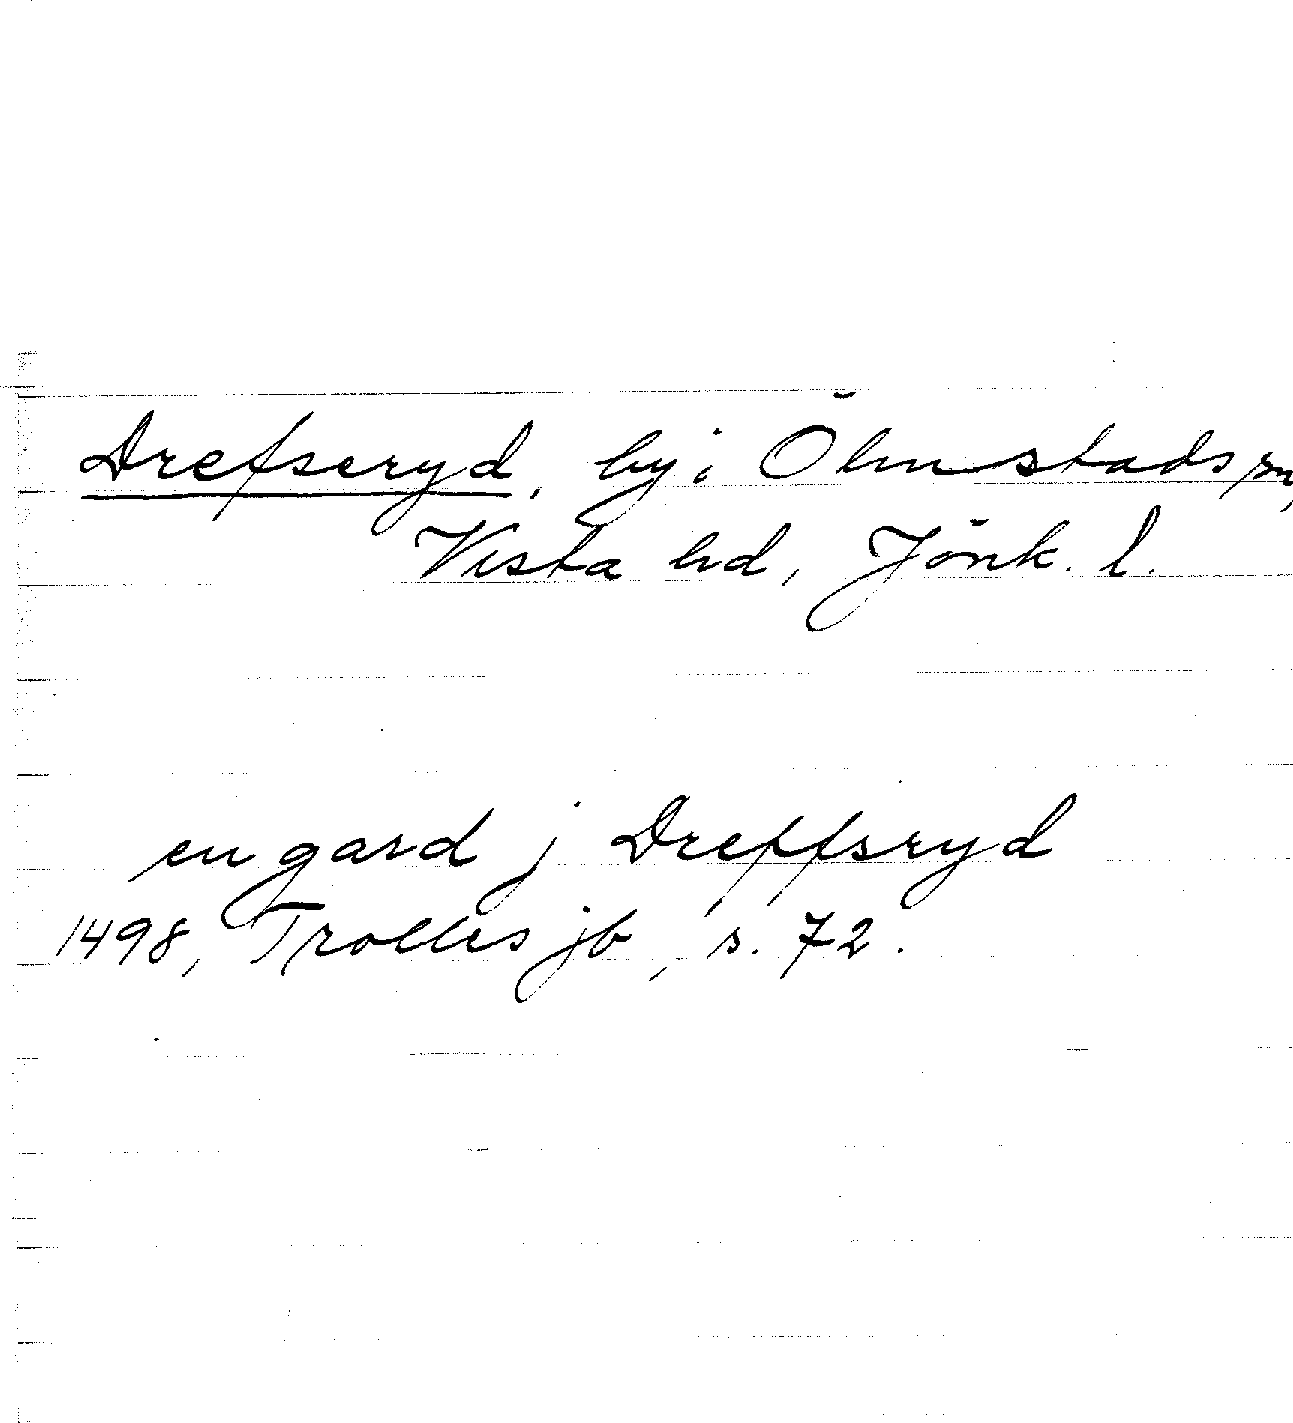 Drefseryd, by i Ölmstads sn,
Vista hd, Jönk. l.
en gard j Dreffsryd
1498, Trolles jb, s. 72.